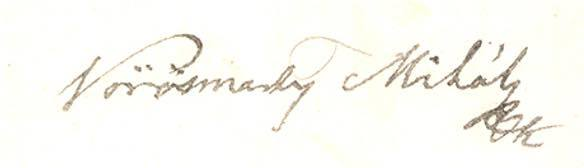 Vörösmarty Mihály